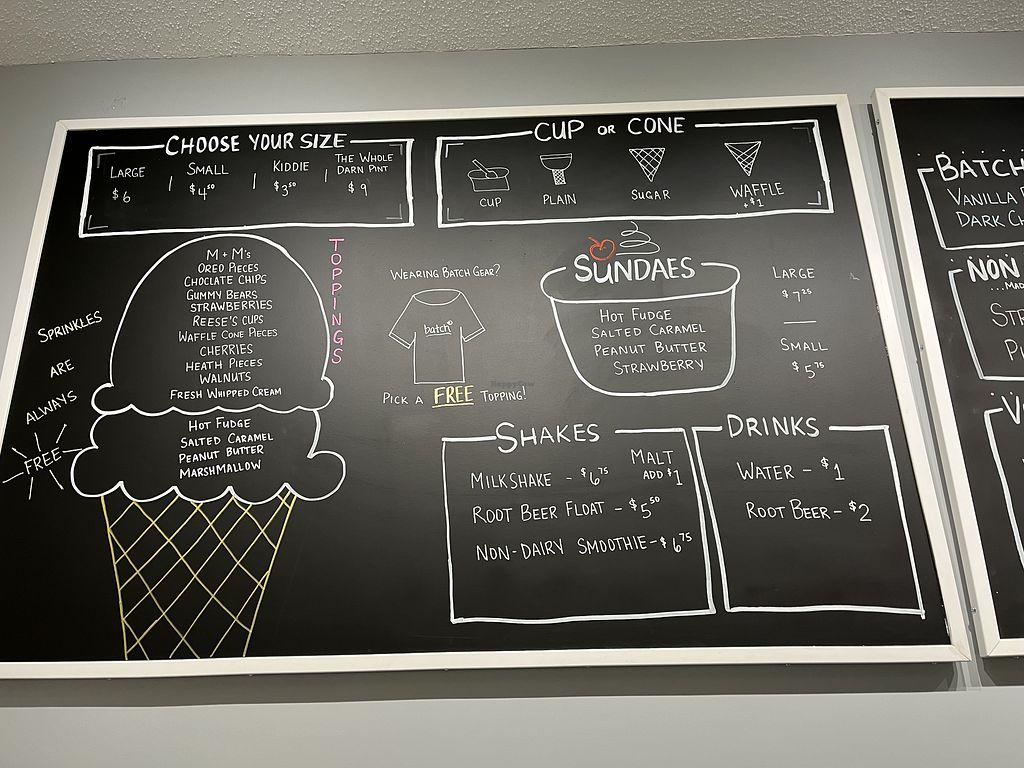 CHOOSE YOUR SIZE
LARGE
$6
SMALL
$4.50
KIDDIE
$3.50
THE WHOLE
DARN PINT
$9
CUP OR CONE
CUP
PLAIN
SUGAR
WAFFLE
+$1
TOPPINGS
M+M's
OREO PIECES
CHOCLATE CHIPS
GUMMY BEARS
STRAWBERRIES
REESE'S CUPS
WAFFLE CONE PIECES
CHERRIES
HEATH PIECES
WALNUTS
FRESH WHIPPED CREAM
HOT FUDGE
SALTED CARAMEL
PEANUT BUTTER
MARSHMALLOW
SPRINKLES
ARE
ALWAYS
FREE
WEARING BATCH GEAR?
batch
PICK A FREE TOPPING!
SUNDAES
HOT FUDGE
SALTED CARAMEL
PEANUT BUTTER
STRAWBERRY
LARGE
$7.25
SMALL
$5.75
SHAKES
MALT
ADD $1
MILKSHAKE - $6.75
ROOT BEER FLOAT - $5.50
NON-DAIRY SMOOTHIE - $6.75
DRINKS
WATER - $1
ROOT BEER - $2
BATCH
VANILLA
DARK
NON